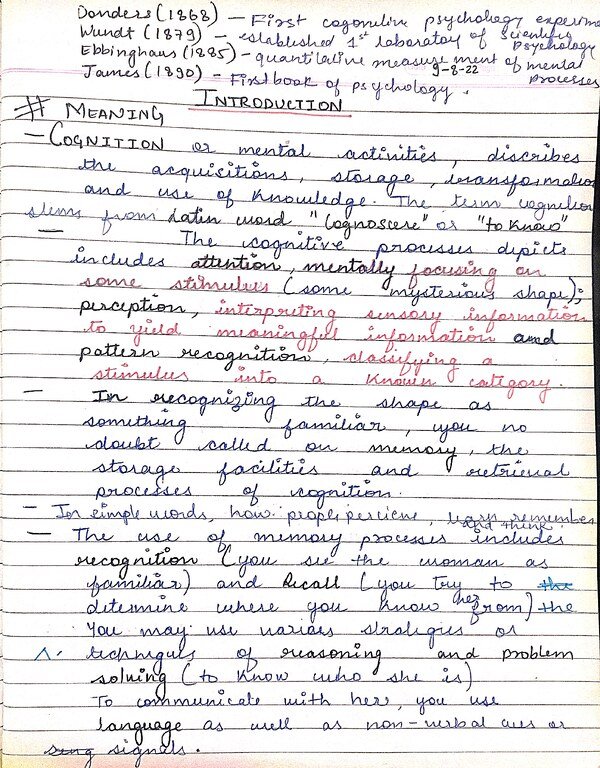 Donders (1868) — First cogonelive psychology experime
Wundt (1879) — established 1st laboratory of scientific Psychology
Ebbinghaus (1885) — quantilative measurement of mental processes
James (1890) — First book of psychology.
9-8-22
INTRODUCTION
# MEANING
— COGNITION or mental activities, describes
the acquisitions, storage, transformation
and use of knowledge. The term cognition
stems from Latin word "Cognoscere" or "to know"
— The cognitive processes depicts
includes attention, mentally focusing on
some stimulus (some mysterious shape);
perception, interpreting sensory information
to yield meaningful information and
pattern recognition, classifying a
stimulus into a known category.
— In recognizing the shape as
something familiar, you no
doubt called on memory, the
storage facilities and retrieval
processes of cognition.
— In simple words, how people percieve, learn, remember and think.
— The use of memory processes includes
recognition (you see the woman as
familiar) and Recall (you try to the
determine where you know her from) the
You may use various strategies or
techniques of reasoning and problem
solving (to know who she is)
To communicate with her, you use
language as well as non-verbal cues or
signals.